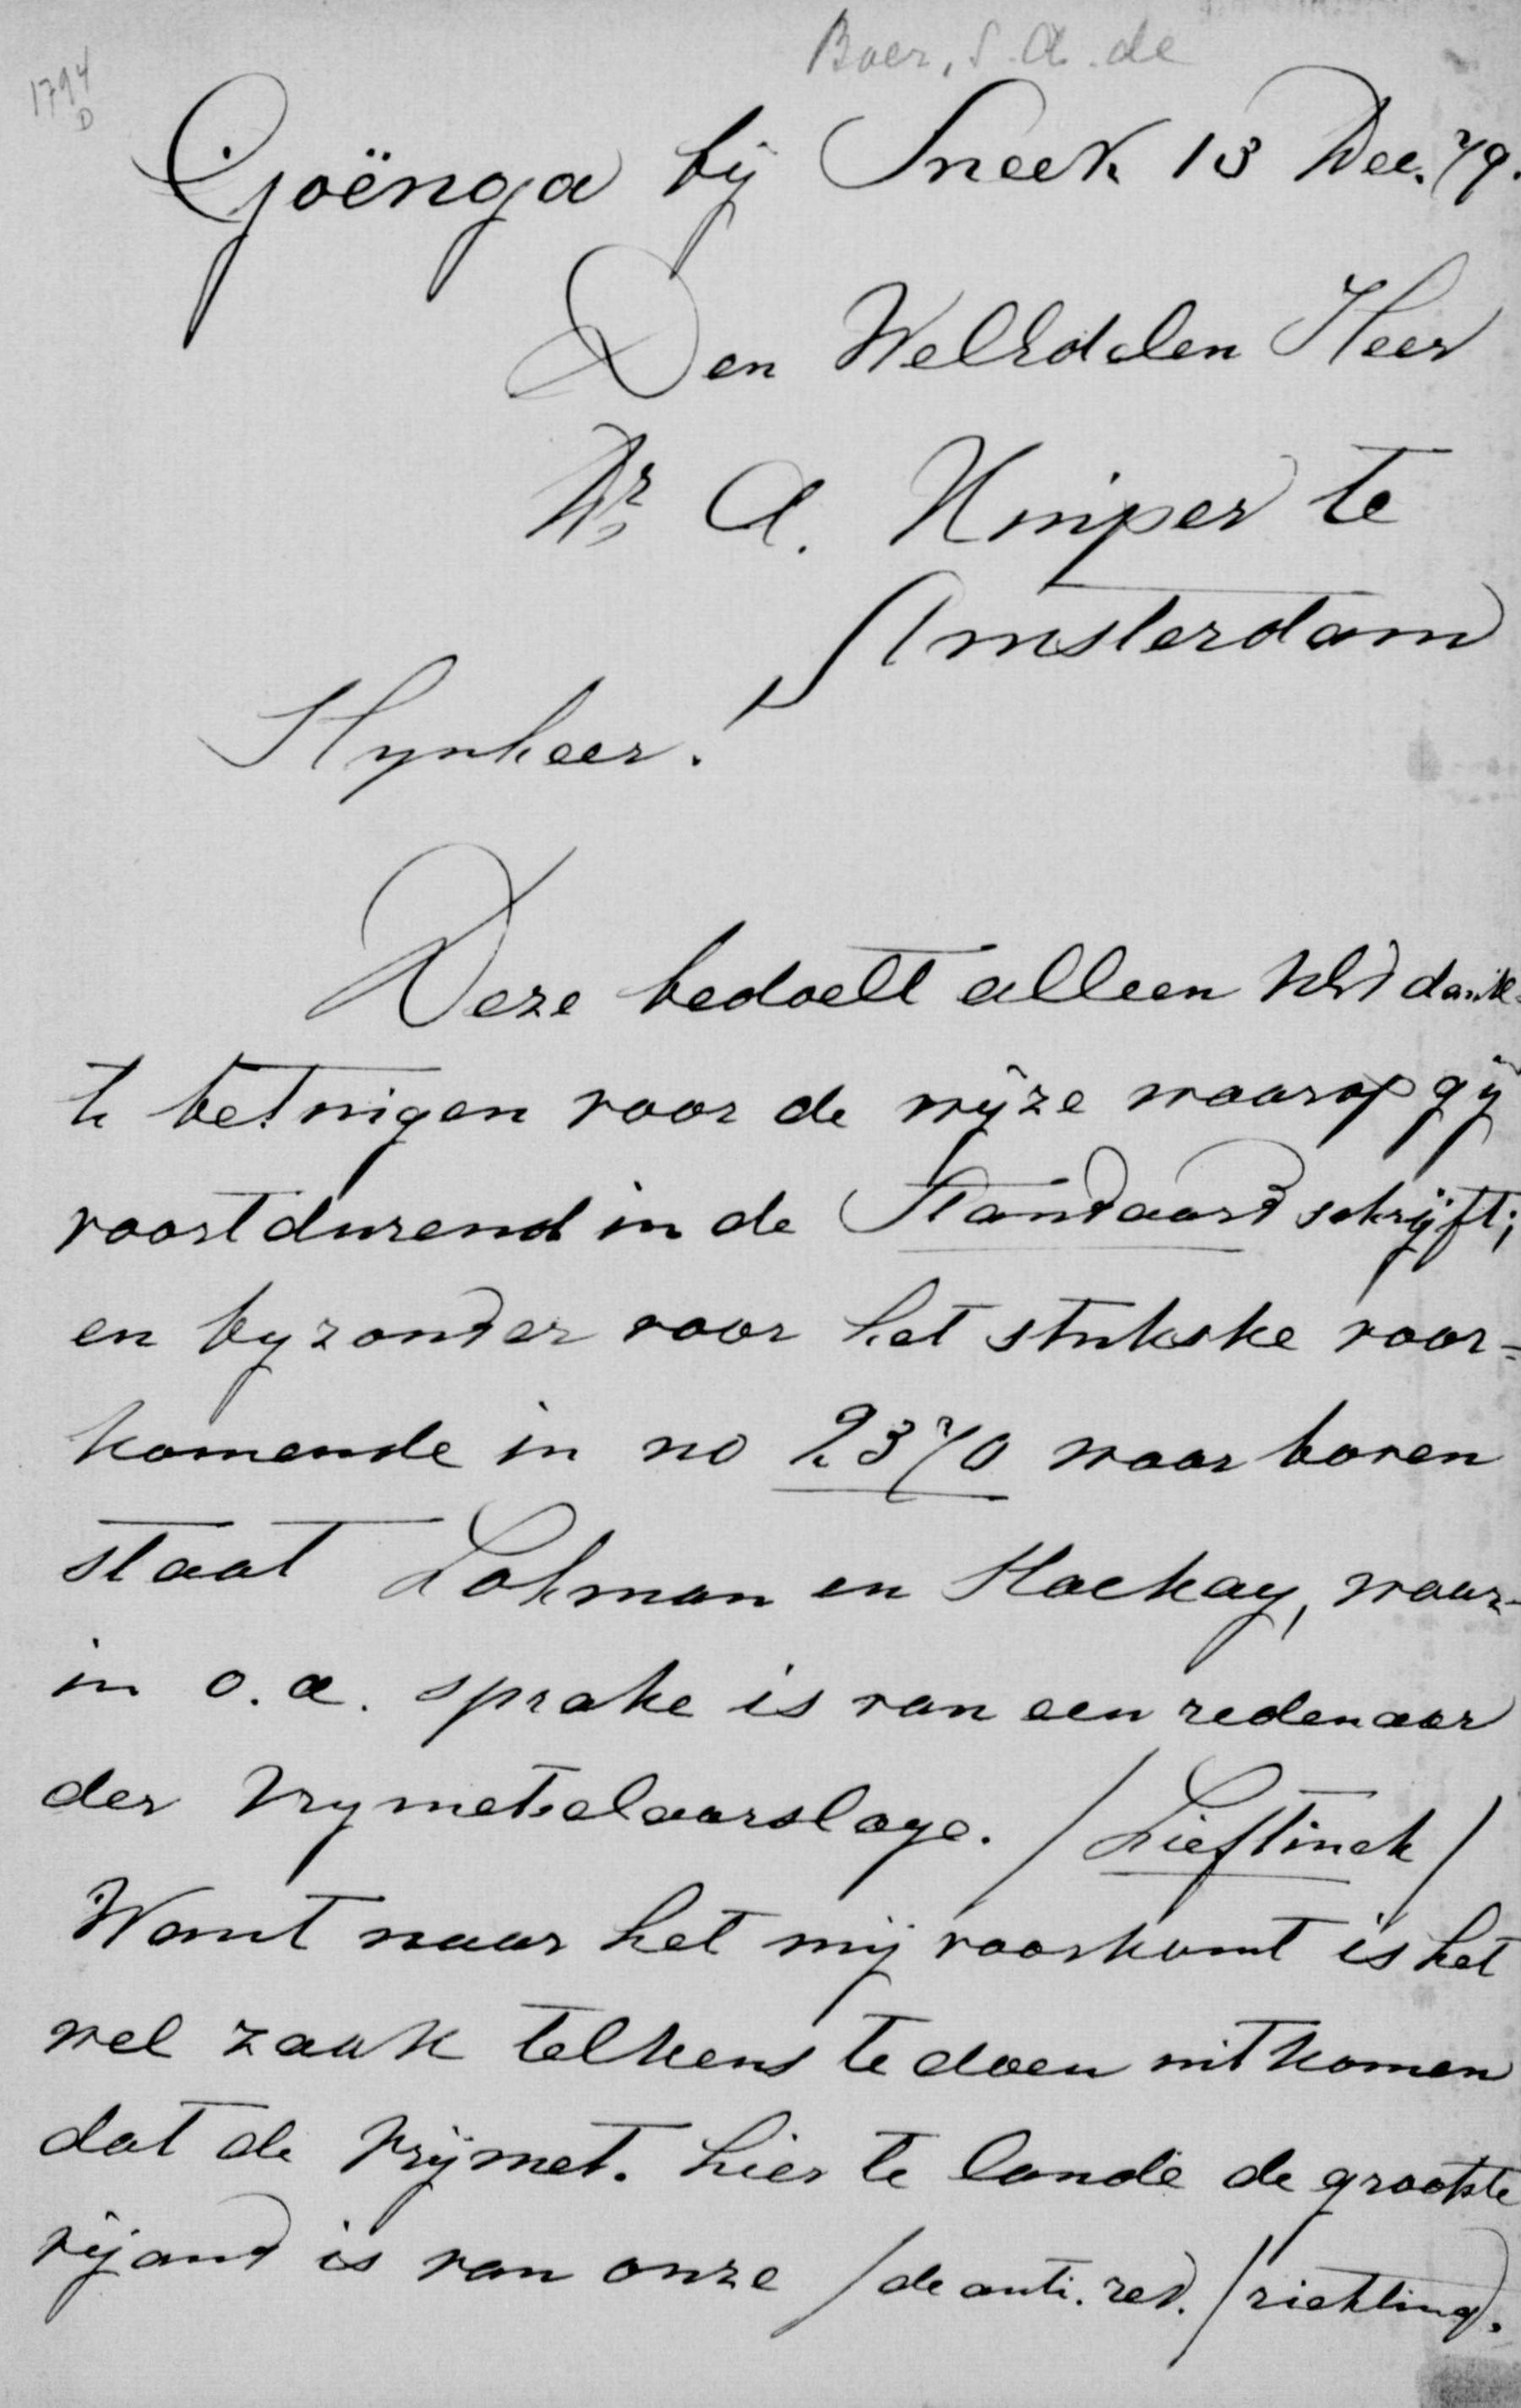 Boer, S. A. de
1794
D
Goënga bij Sneek 13 Dec. 79.
Den WelEdelen Heer
Dr A. Kuiper te
Amsterdam
Mynheer!
Deze bedoelt alleen UEd dank
te betuigen voor de wijze waarop gij
voortdurend in de Standaard schrijft;
en byzonder voor het stukske voor=
komende in no 2370 waar boven
staat Lohman en Mackay, waar-
in o.a. sprake is van een redenaar
der Vrymetselaarsloge. / Lieftinck /
Want naar het mij voorkomt is het
wel zaak telkens te doen uitkomen
dat de Vrijmet. hier te lande de grootste
vijand is van onze / de anti. rev. / richting.